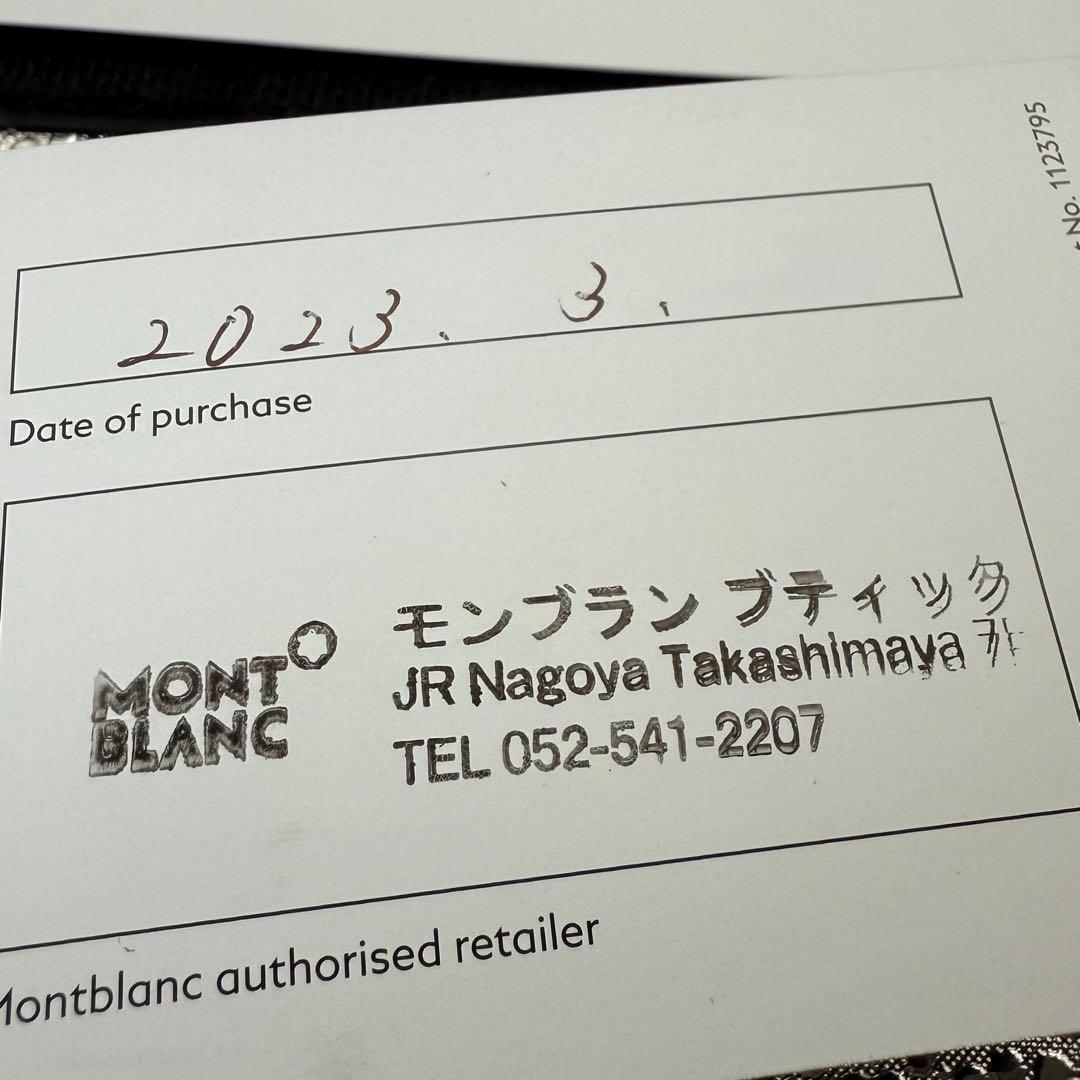 No. 1123795
2023. 3.
Date of purchase
MONT
BLANC
モンブラン ブティック
JR Nagoya Takashimaya
TEL 052-541-2207
Montblanc authorised retailer